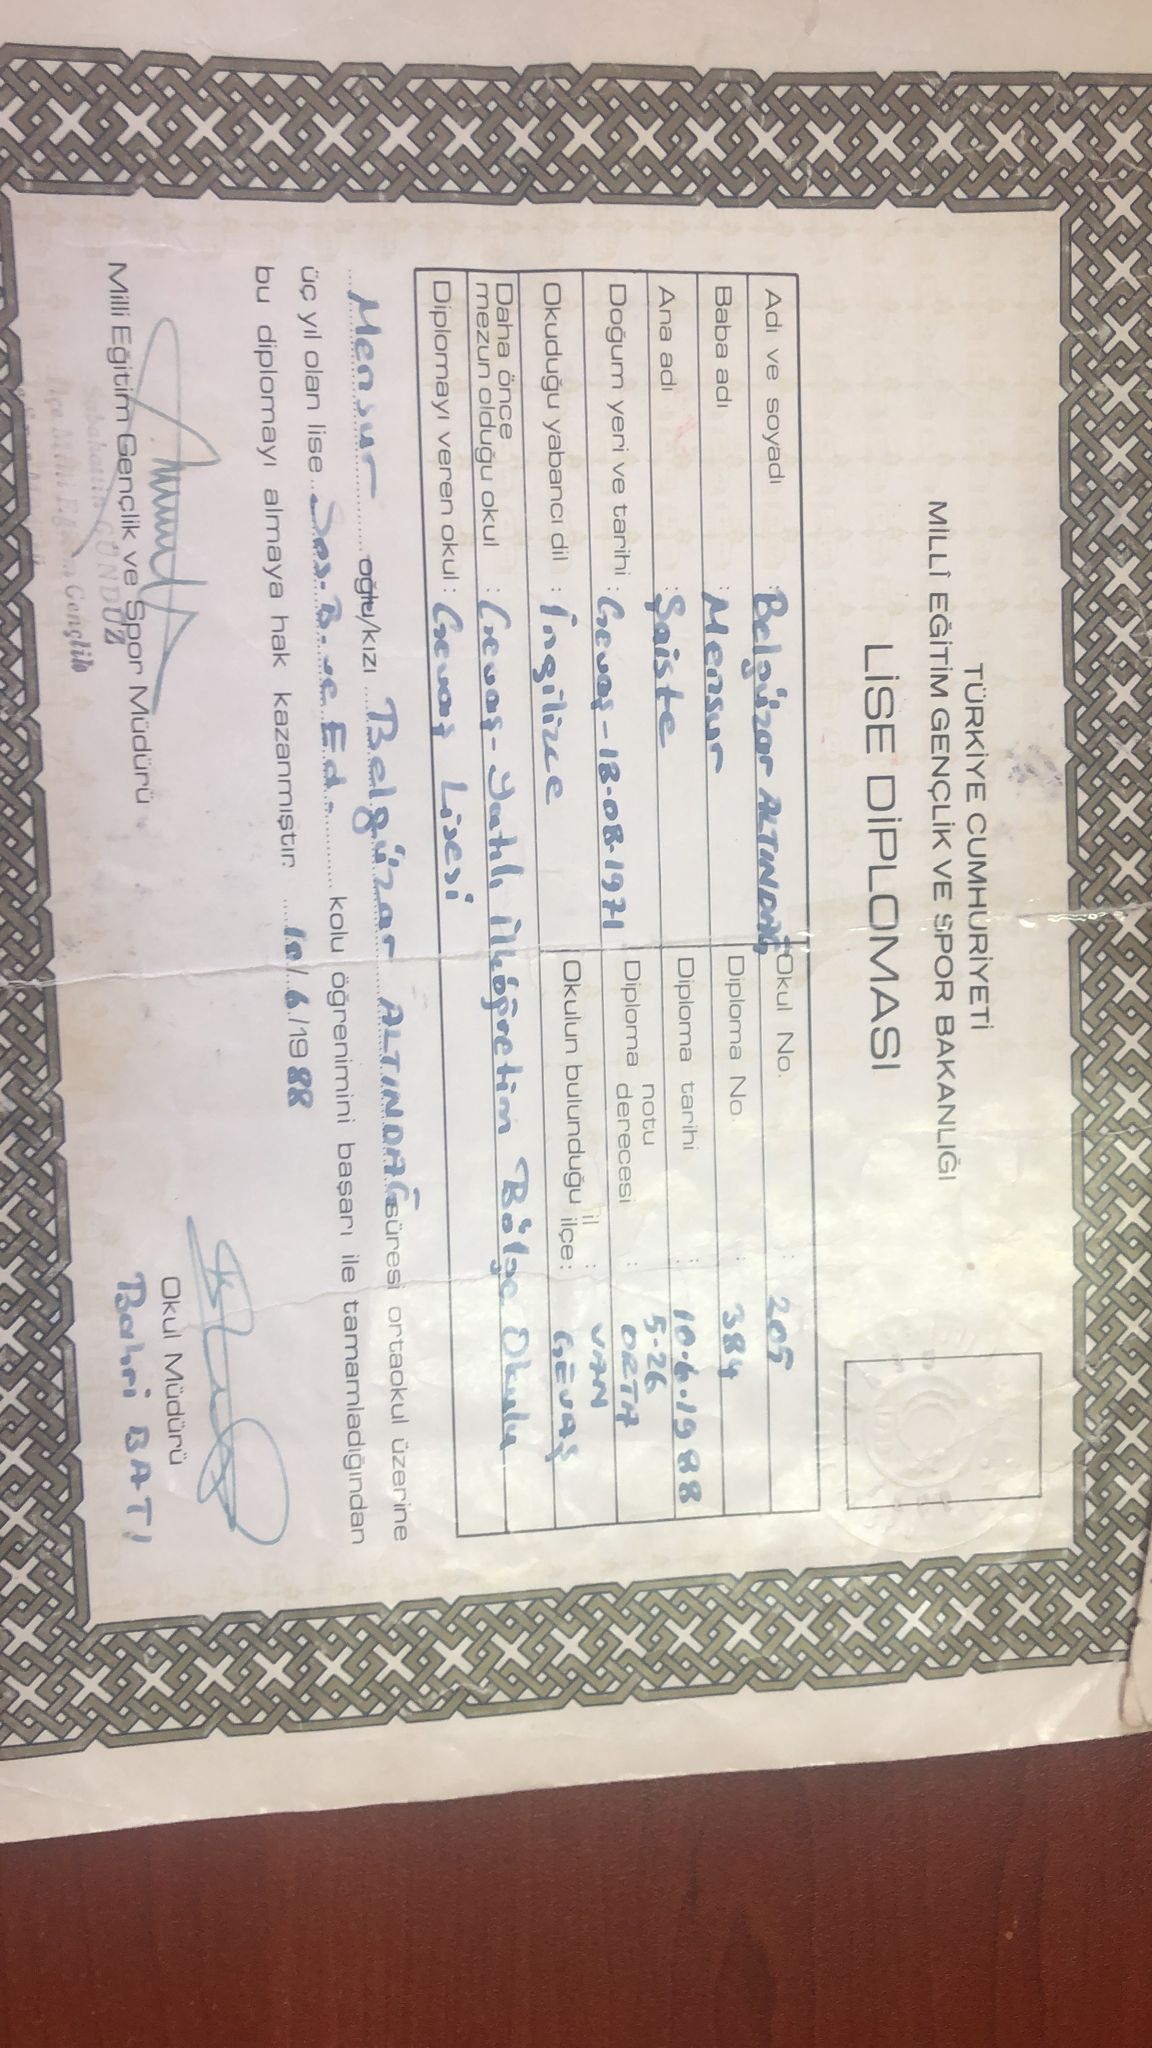 TÜRKİYE CUMHURİYETİ
MİLLÎ EĞİTİM GENÇLİK VE SPOR BAKANLIĞI
LİSE DİPLOMASI
Adı ve soyadı : Belgüzar ALTINDAĞ
Okul No. : 205
Baba adı : Mensur
Diploma No. : 384
Ana adı : Şaiste
Diploma tarihi : 10.6.1988
Doğum yeri ve tarihi : Gevaş-18-08-1971
Diploma notu : 5-26
derecesi : ORTA
Okuduğu yabancı dil : İngilizce
Okulun bulunduğu il : VAN
ilçe : GEVAŞ
Daha önce
mezun olduğu okul : Gevaş-Yatılı İlköğretim Bölge Okulu
Diplomayı veren okul : Gevaş Lisesi
Mensur oğlu/kızı Belgüzar ALTINDAĞ süresi ortaokul üzerine
üç yıl olan lise Sos-B.ve Ed. kolu öğrenimini başarı ile tamamladığından
bu diplomayı almaya hak kazanmıştır. 10/6/1988
Milli Eğitim Gençlik ve Spor Müdürü
Sabahattin GÜNDÜZ
İlçe Milli Eğitim Gençlik
Okul Müdürü
Bahri BATI